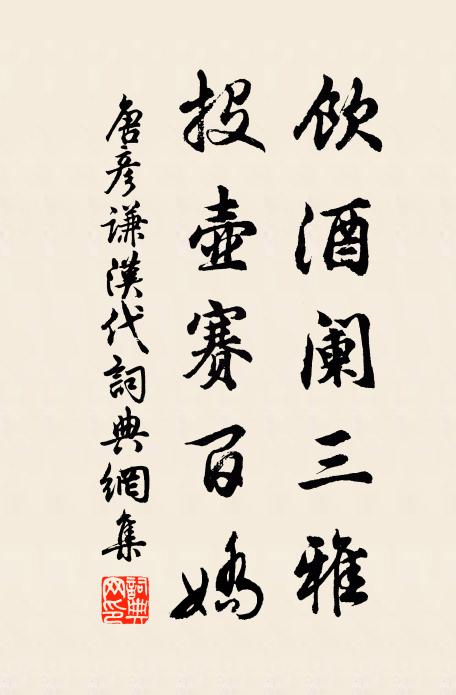 飲酒阑三雅
投壺賽百嬌
唐彥謙漢代詞典網集
詞典網印